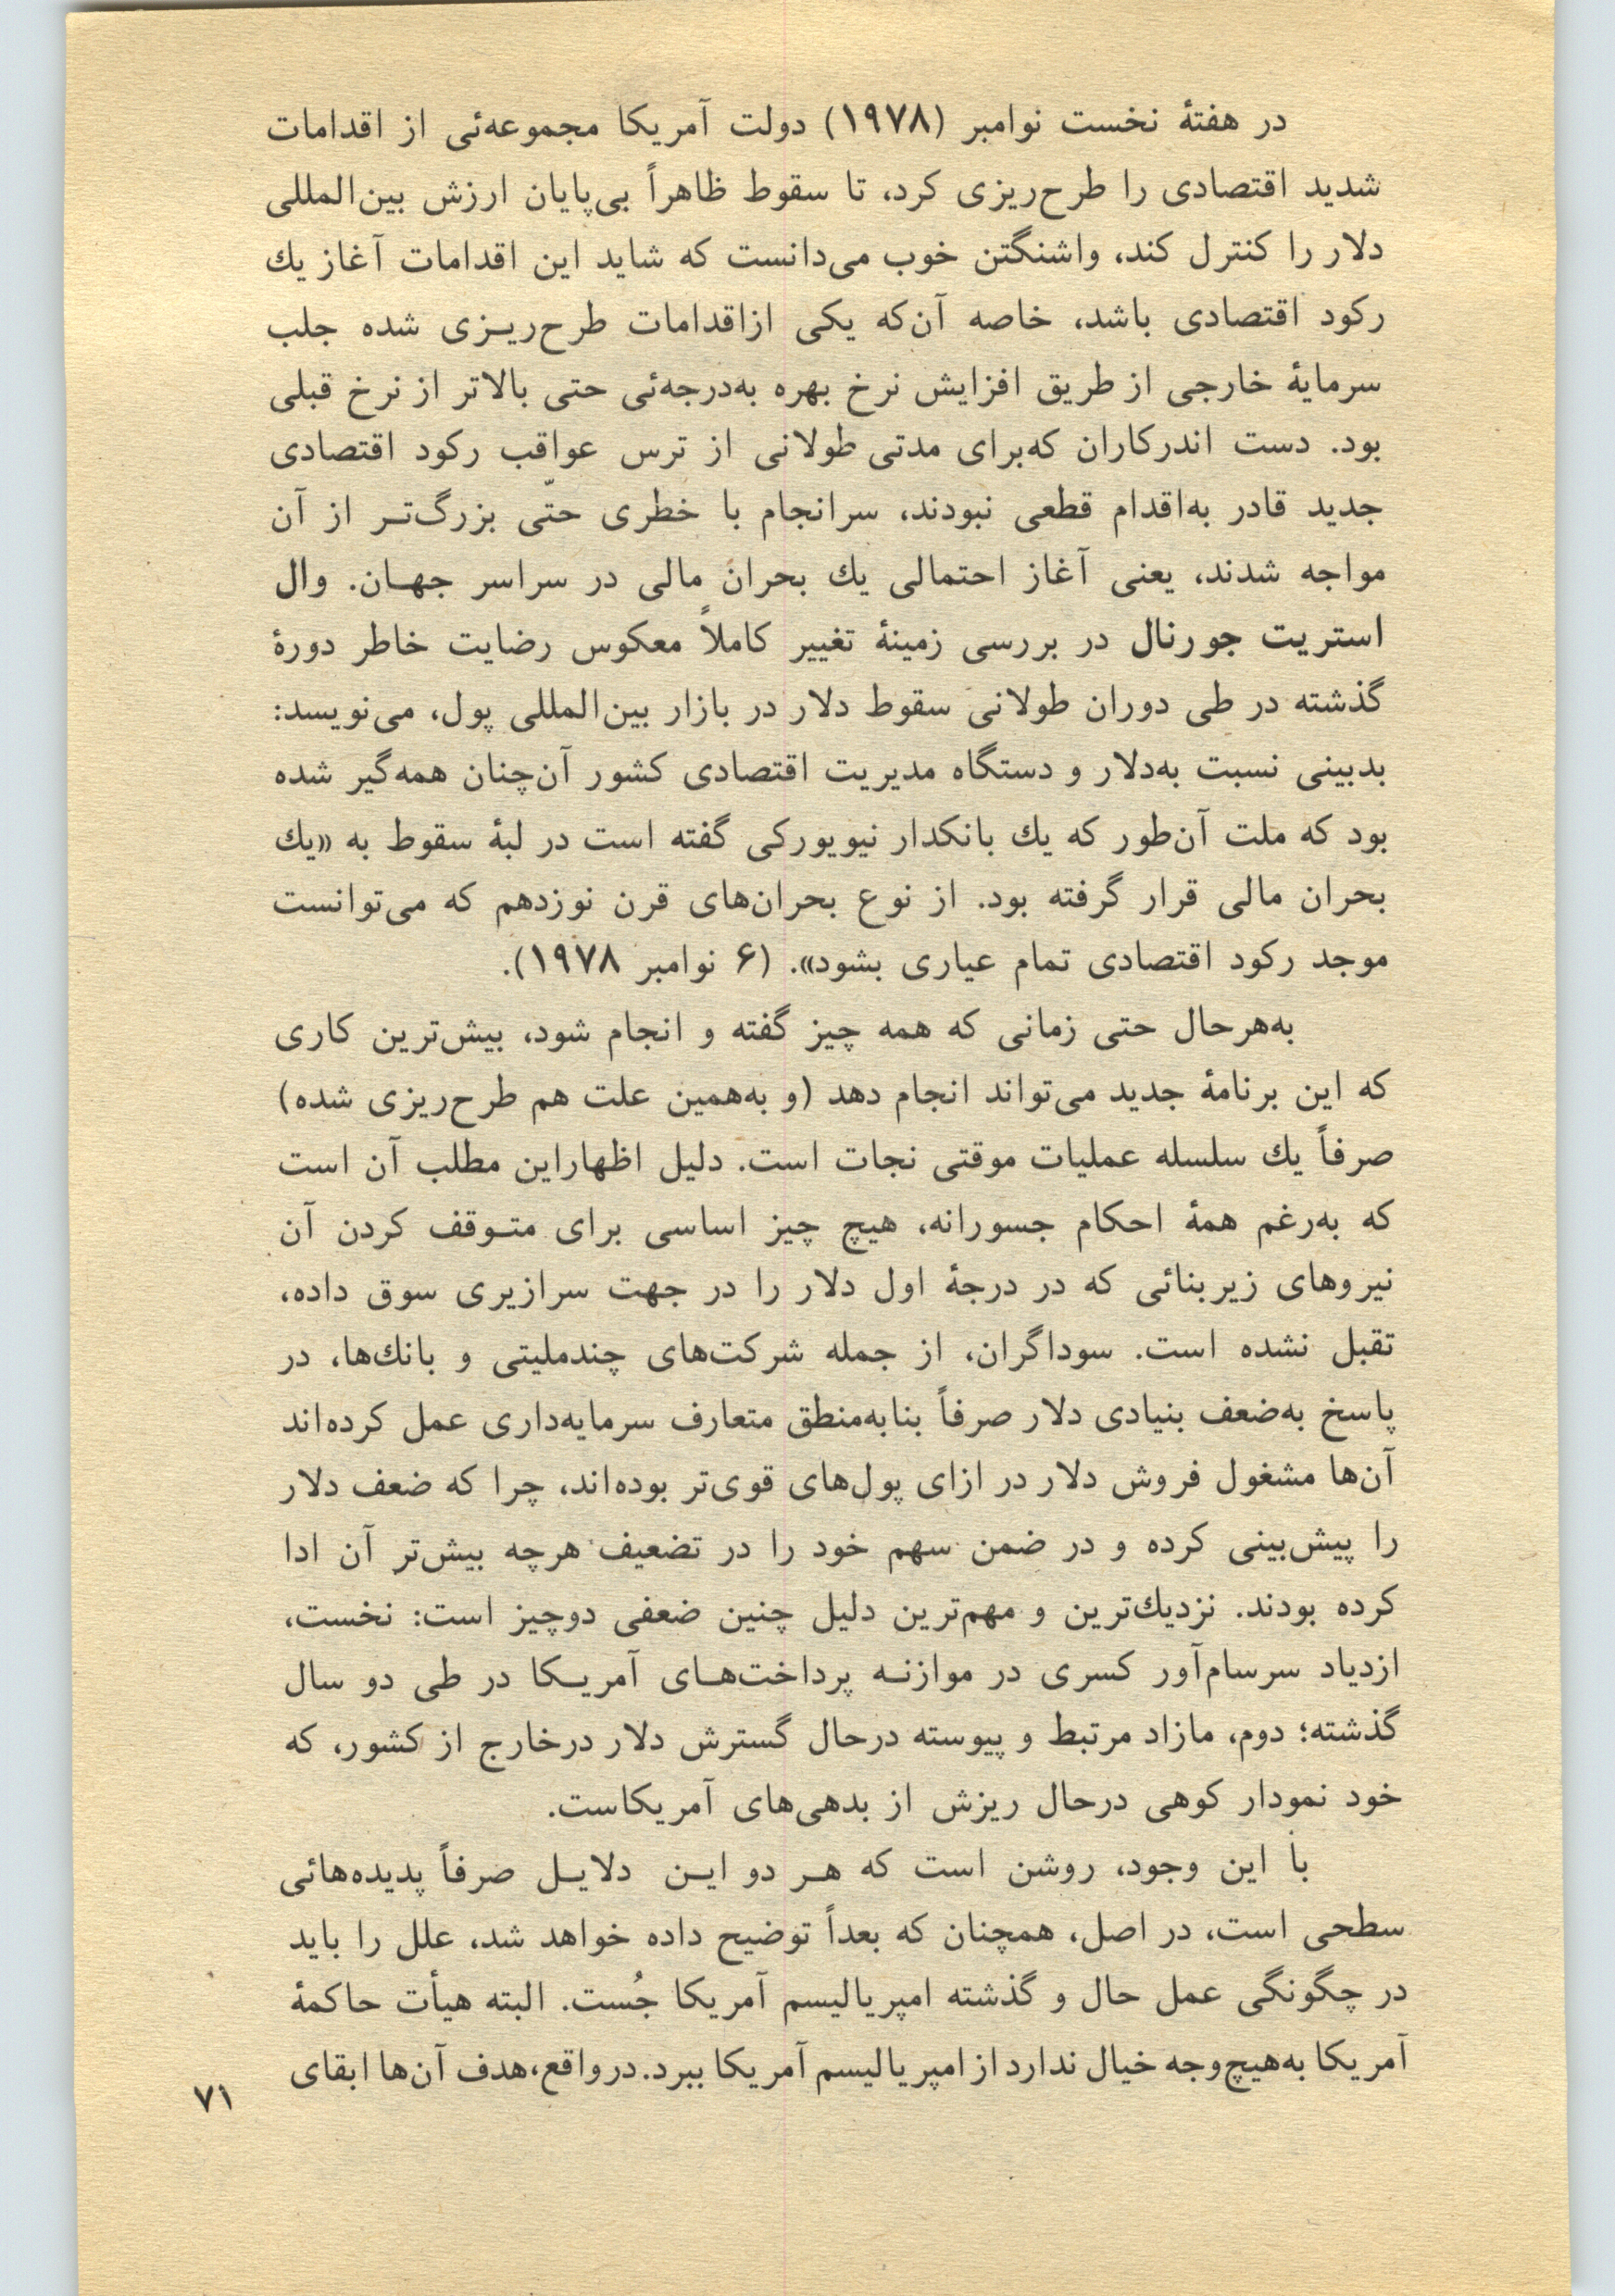 در هفتهٔ نخست نوامبر (۱۹۷۸) دولت آمریکا مجموعه‌ئی از اقدامات
شدید اقتصادی را طرح‌ریزی کرد، تا سقوط ظاهراً بی‌پایان ارزش بین‌المللی
دلار را کنترل کند، واشنگتن خوب می‌دانست که شاید این اقدامات آغاز یك
رکود اقتصادی باشد، خاصه آن‌که یکی ازاقدامات طرح‌ریـزی شده جلب
سرمایهٔ خارجی از طریق افزایش نرخ بهره به‌درجه‌ئی حتی بالاتر از نرخ قبلی
بود. دست اندرکاران که‌برای مدتی طولانی از ترس عواقب رکود اقتصادی
جدید قادر به‌اقدام قطعی نبودند، سرانجام با خطری حتّی بزرگ‌تـر از آن
مواجه شدند، یعنی آغاز احتمالی یك بحران مالی در سراسر جهـان. وال
استریت جورنال در بررسی زمینهٔ تغییر کاملاً معکوس رضایت خاطر دورهٔ
گذشته در طی دوران طولانی سقوط دلار در بازار بین‌المللی پول، می‌نویسد:
بدبینی نسبت به‌دلار و دستگاه مدیریت اقتصادی کشور آن‌چنان همه‌گیر شده
بود که ملت آن‌طور که یك بانکدار نیویورکی گفته است در لبهٔ سقوط به «یك
بحران مالی قرار گرفته بود. از نوع بحران‌های قرن نوزدهم که می‌توانست
موجد رکود اقتصادی تمام عیاری بشود». (۶ نوامبر ۱۹۷۸).
به‌هرحال حتی زمانی که همه چیز گفته و انجام شود، بیش‌ترین کاری
که این برنامهٔ جدید می‌تواند انجام دهد (و به‌همین علت هم طرح‌ریزی شده)
صرفاً یك سلسله عملیات موقتی نجات است. دلیل اظهاراین مطلب آن است
که به‌رغم همهٔ احکام جسورانه، هیچ چیز اساسی برای متـوقف کردن آن
نیروهای زیربنائی که در درجهٔ اول دلار را در جهت سرازیری سوق داده،
تقبل نشده است. سوداگران، از جمله شرکت‌های چندملیتی و بانك‌ها، در
پاسخ به‌ضعف بنیادی دلار صرفاً بنابه‌منطق متعارف سرمایه‌داری عمل کرده‌اند
آن‌ها مشغول فروش دلار در ازای پول‌های قوی‌تر بوده‌اند، چرا که ضعف دلار
را پیش‌بینی کرده و در ضمن سهم خود را در تضعیف هرچه بیش‌تر آن ادا
کرده بودند. نزدیك‌ترین و مهم‌ترین دلیل چنین ضعفی دوچیز است: نخست،
ازدیاد سرسام‌آور کسری در موازنـه پرداخت‌هـای آمریـکا در طی دو سال
گذشته؛ دوم، مازاد مرتبط و پیوسته درحال گسترش دلار درخارج از کشور، که
خود نمودار کوهی درحال ریزش از بدهی‌های آمریکاست.
با این وجود، روشن است که هـر دو ایـن دلایـل صرفاً پدیده‌هائی
سطحی است، در اصل، همچنان که بعداً توضیح داده خواهد شد، علل را باید
در چگونگی عمل حال و گذشته امپریالیسم آمریکا جُست. البته هیأت حاکمهٔ
آمریکا به‌هیچ‌وجه خیال ندارد از امپریالیسم آمریکا ببرد. درواقع،هدف آن‌ها ابقای
۷۱